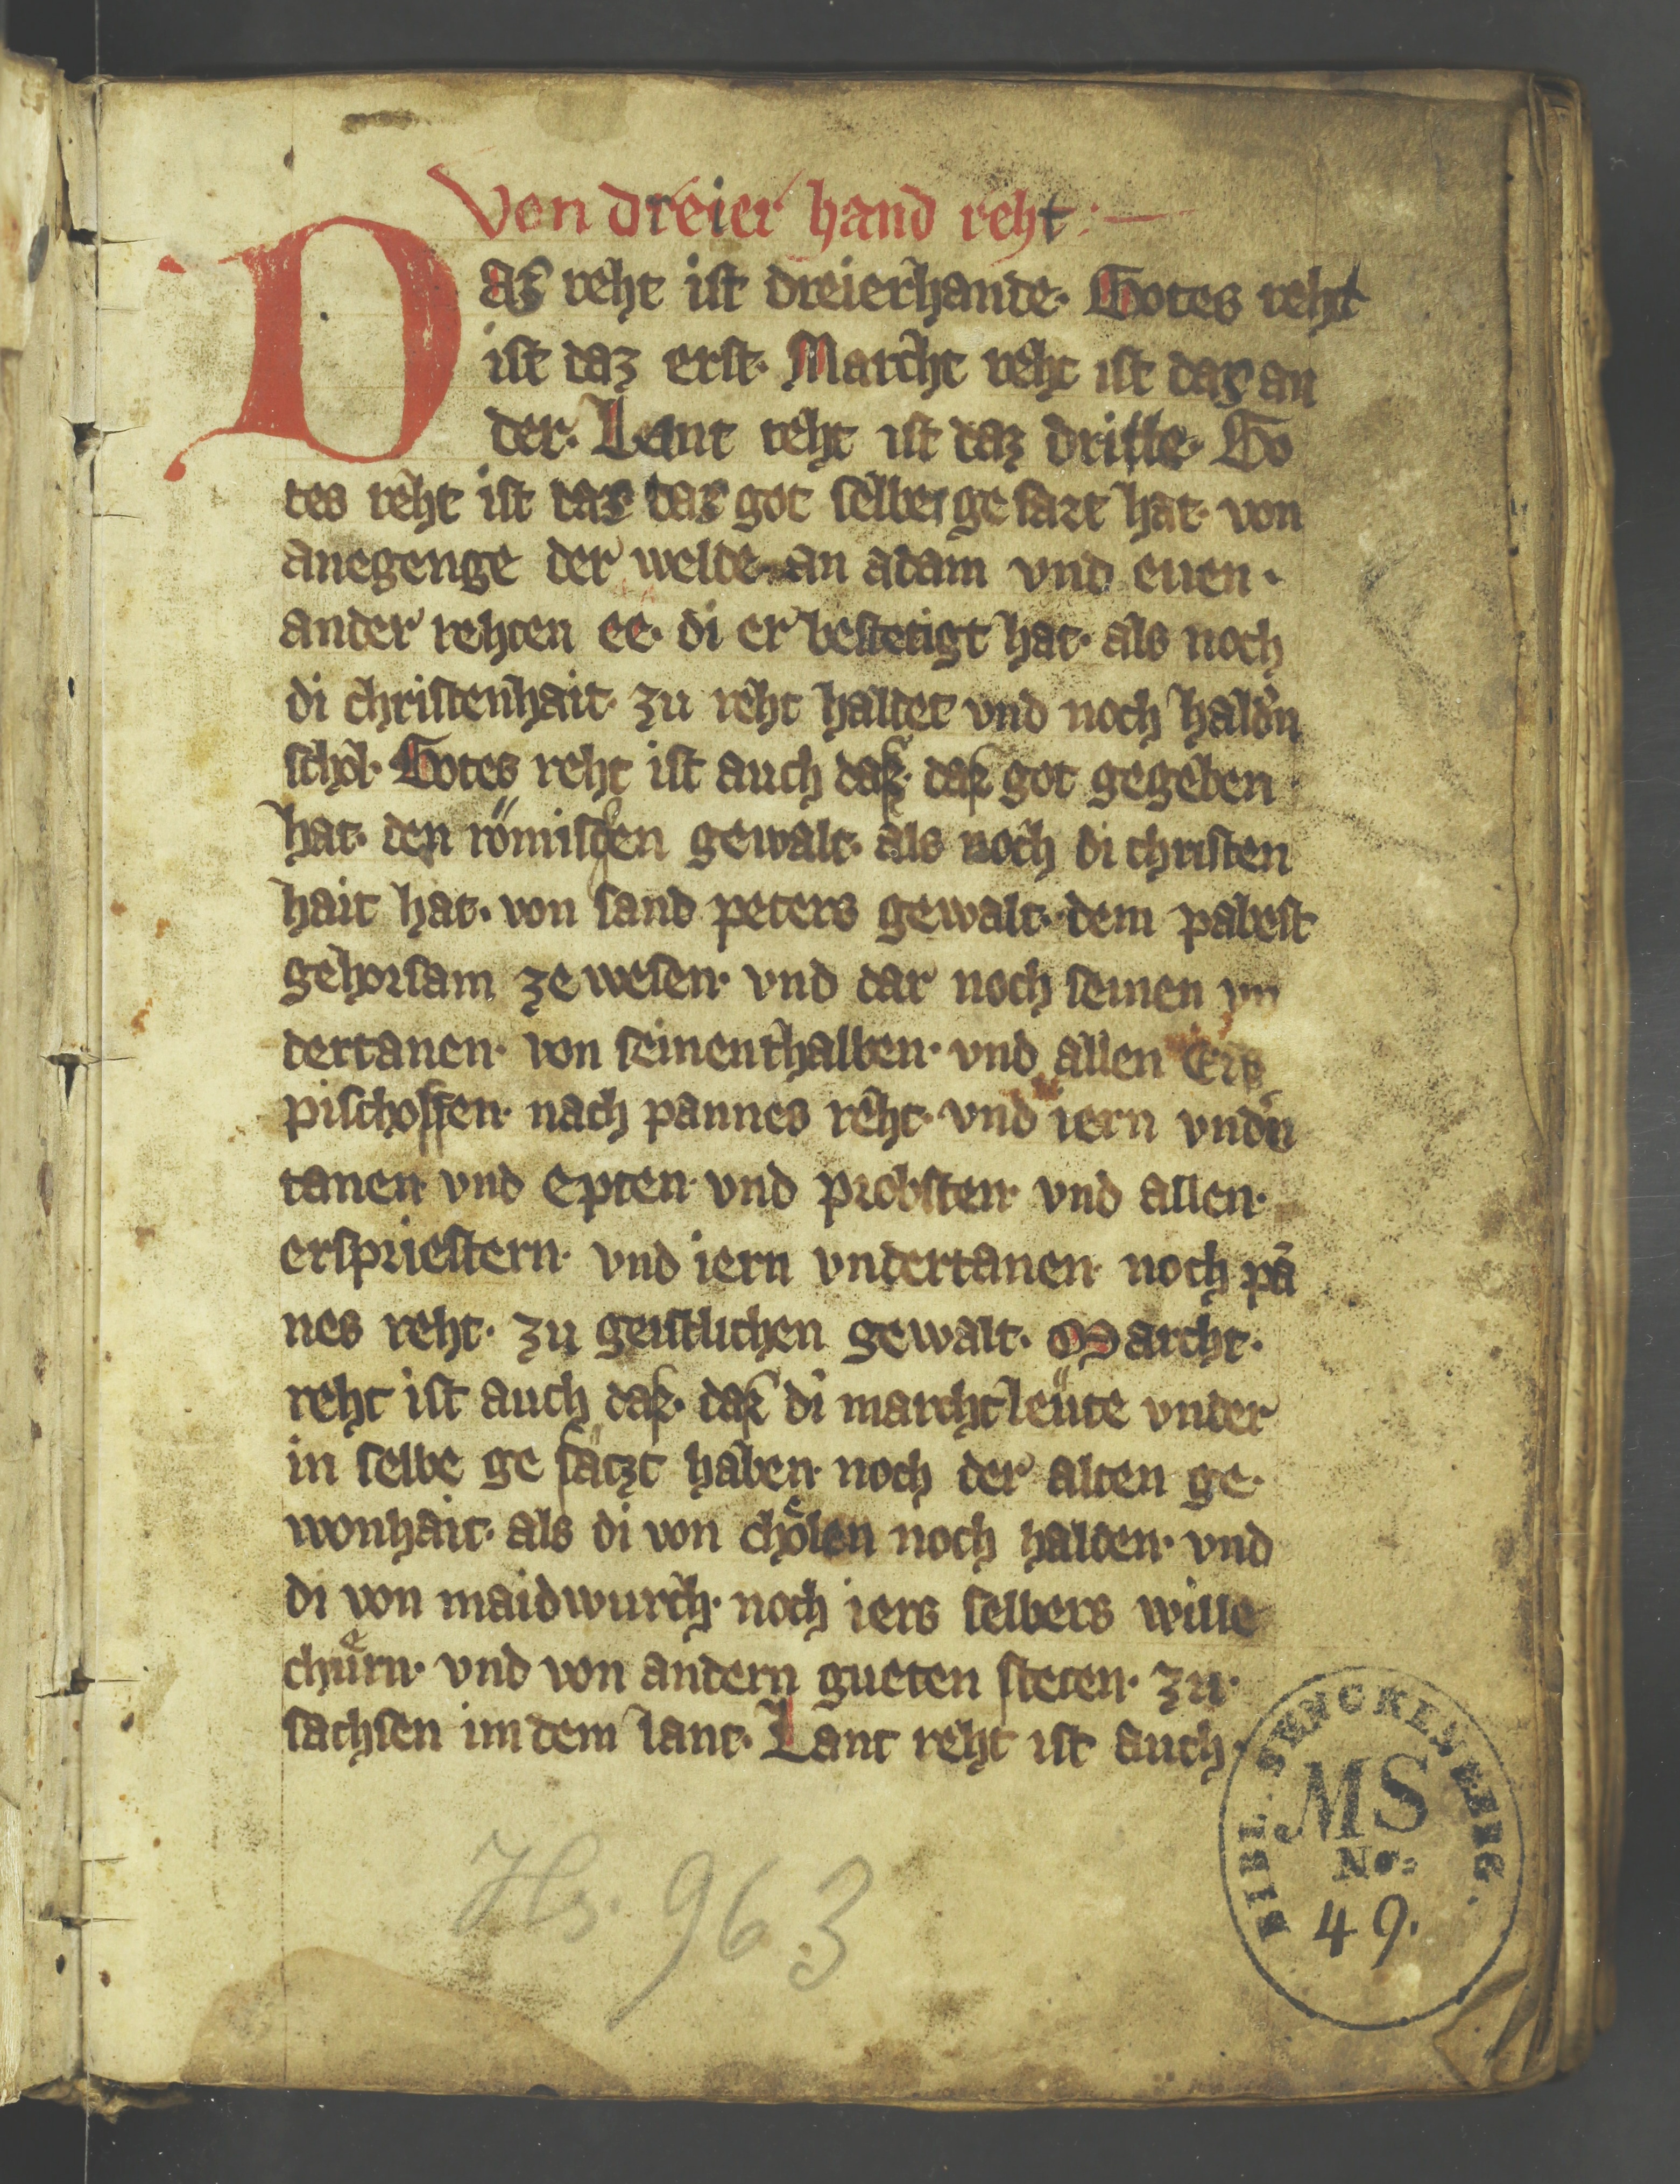 Von dreier hand reht :—
Daz reht ist dreierhande· Gotes reht
ist daz erst· Marcht reht ist daz an
der· Lant reht ist daz dritte· Go
tes reht ist daz daz got selber ge sazt hat· von
anegenge der welde· an adam vnd euen·
ander rehten ee· di er bestetigt hat· als noch
di christenhait· zu reht haltet vnd noch haldn
schol· Gotes reht ist auch daz· daz got gegeben
hat· den römischen gewalt· als noch di christen
hait hat· von sand peters gewalt· dem pabest
gehorsam ze wesen· vnd dar noch seinen vn
dertanen· von seinenthalben· vnd allen Erz
pischoffen· nach pannes reht· vnd iern vndn
tanen vnd Epten· vnd probsten· vnd allen·
erspriestern· vnd iern vndertanen· noch pā
nes reht· zu geistlichen gewalt· Marcht·
reht ist auch daz· daz di marcht leüte vnder
in selbe ge sätzt haben· noch der alten ge·
wonhait· als di von chölen noch halden· vnd
di von maidwurch· noch iers selbers wille
chuͤrn· vnd von andern gueten steten· zu·
sachsen in dem lant· Lant reht ist auch·
Hs. 963
BIBL. SENCKENBERG.
MS
No:
49.